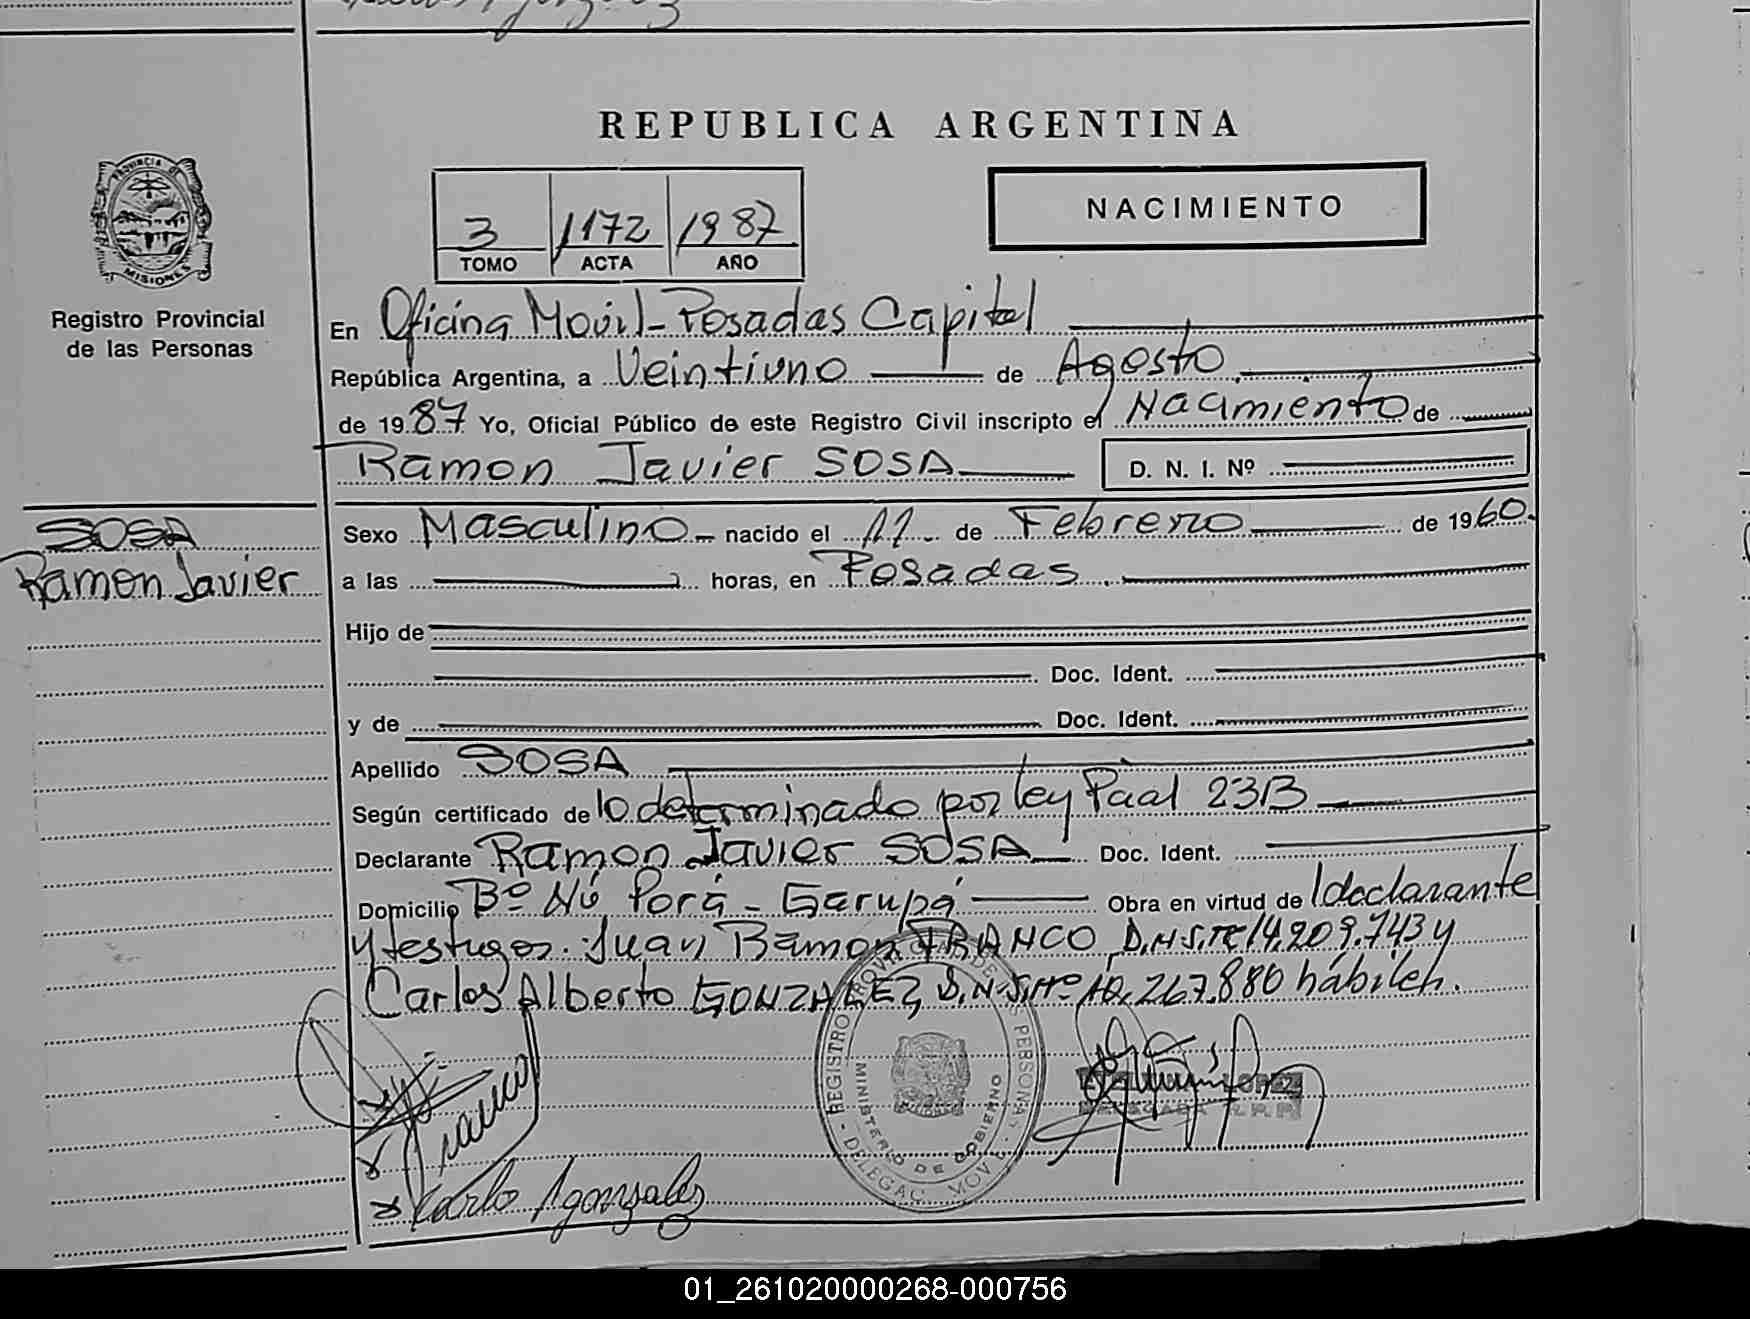 REPUBLICA ARGENTINA
NACIMIENTO
3 1172 1987
TOMO ACTA AÑO
PROVINCIA DE MISIONES
Registro Provincial
de las Personas
En Oficina Movil - Posadas Capital
República Argentina, a Veintiuno de Agosto
de 1987 Yo, Oficial Público de este Registro Civil inscripto el Nacimiento de
Ramon Javier SOSA D. N. I. Nº
SOSA
Ramon Javier
Sexo Masculino - nacido el 11 de Febrero de 1960.
a las horas, en Posadas.
Hijo de
Doc. Ident.
y de Doc. Ident.
Apellido SOSA
Según certificado de lo determinado por ley Pcial 2313
Declarante Ramon Javier SOSA Doc. Ident.
Domicilio Bº Ñú Porá - Garupá Obra en virtud de l declarante
y testigos. Juan Ramon FRANCO, D.N.I. Nº 14.209.743 y
Carlos Alberto GONZALEZ, D.N.I. Nº 10.267.880 hábiles.
REGISTRO PROVINCIAL DE LAS PERSONAS - DELEGAC. MOVIL
MINISTERIO DE GOBIERNO
Franco
Carlo A gonzalez
LOPEZ
DELEGADA R.P.P.
01_261020000268-000756